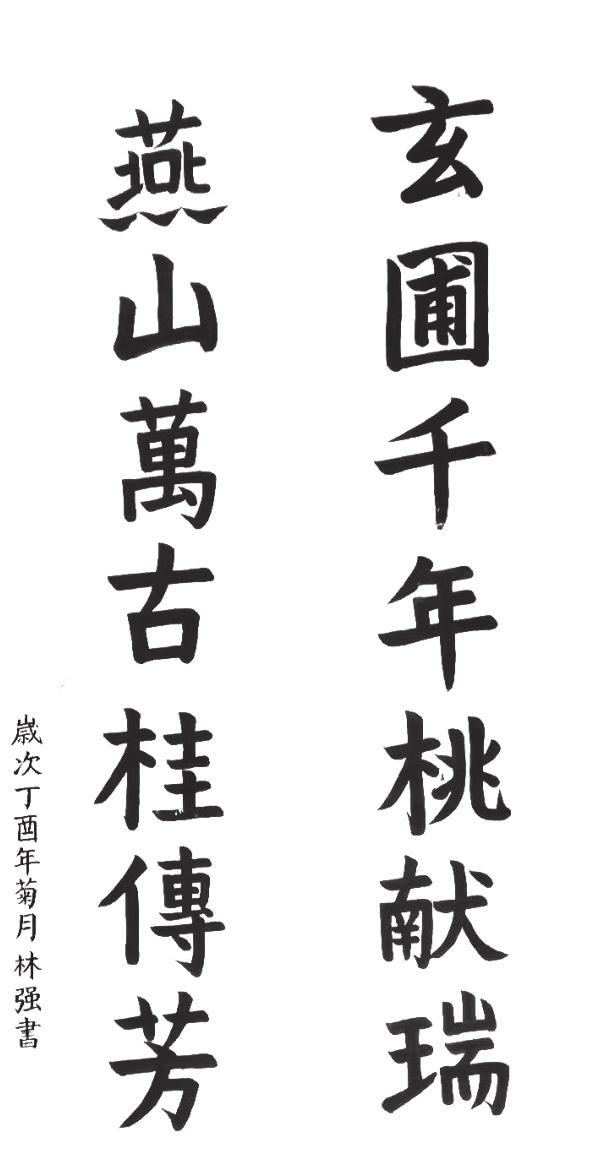 玄圃千年桃献瑞
燕山萬古桂傳芳
歲次丁酉年菊月 林强書